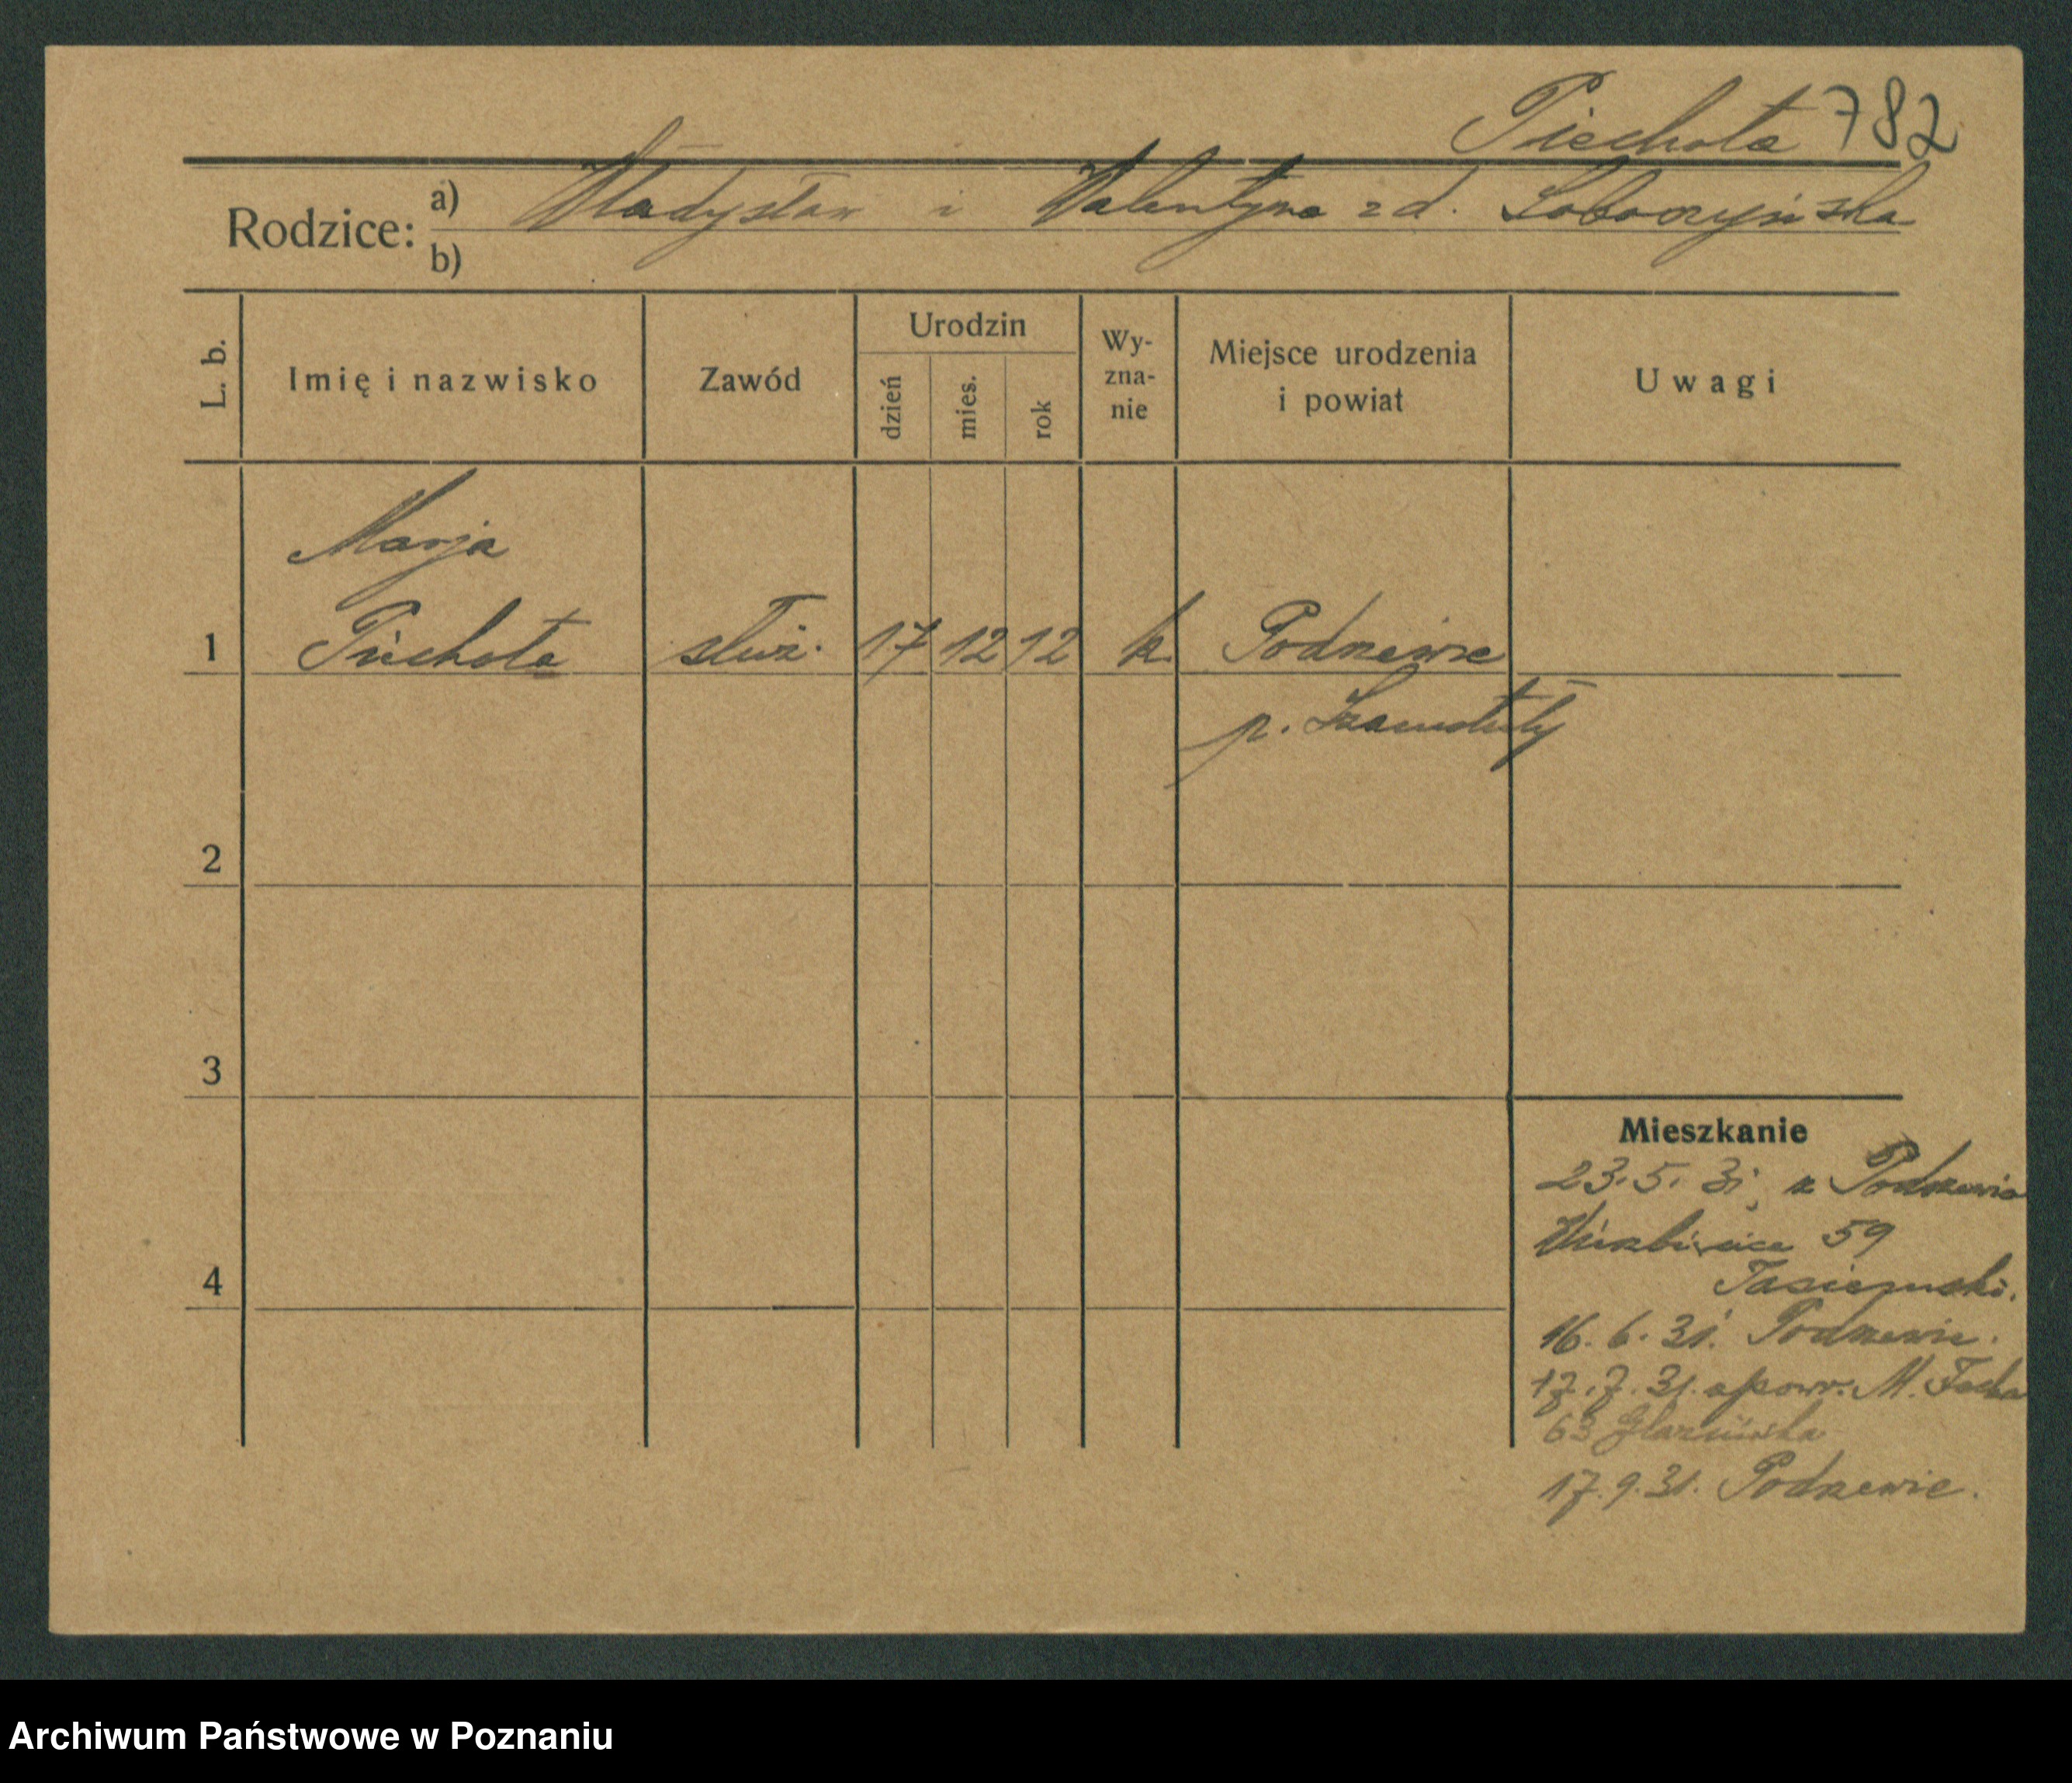 Piechota 782
Rodzice: a) Władysław i Walentyna z d. Soboczyńska
b)
L. b. Imię i nazwisko Zawód Urodzin dzień mies. rok Wy-zna-nie Miejsce urodzenia i powiat Uwagi
Marja
1 Piechota służ. 17 12 12 k. Podrzewie
p. Szamotuły
2
3
Mieszkanie
23. 5. 31 z Podrzewia
Wierzbięcice 59
4
16. 6. 31. Podrzewie.
17. 7. 31. spowr. M. Focha
63
17. 9. 31. Podrzewie.
Archiwum Państwowe w Poznaniu